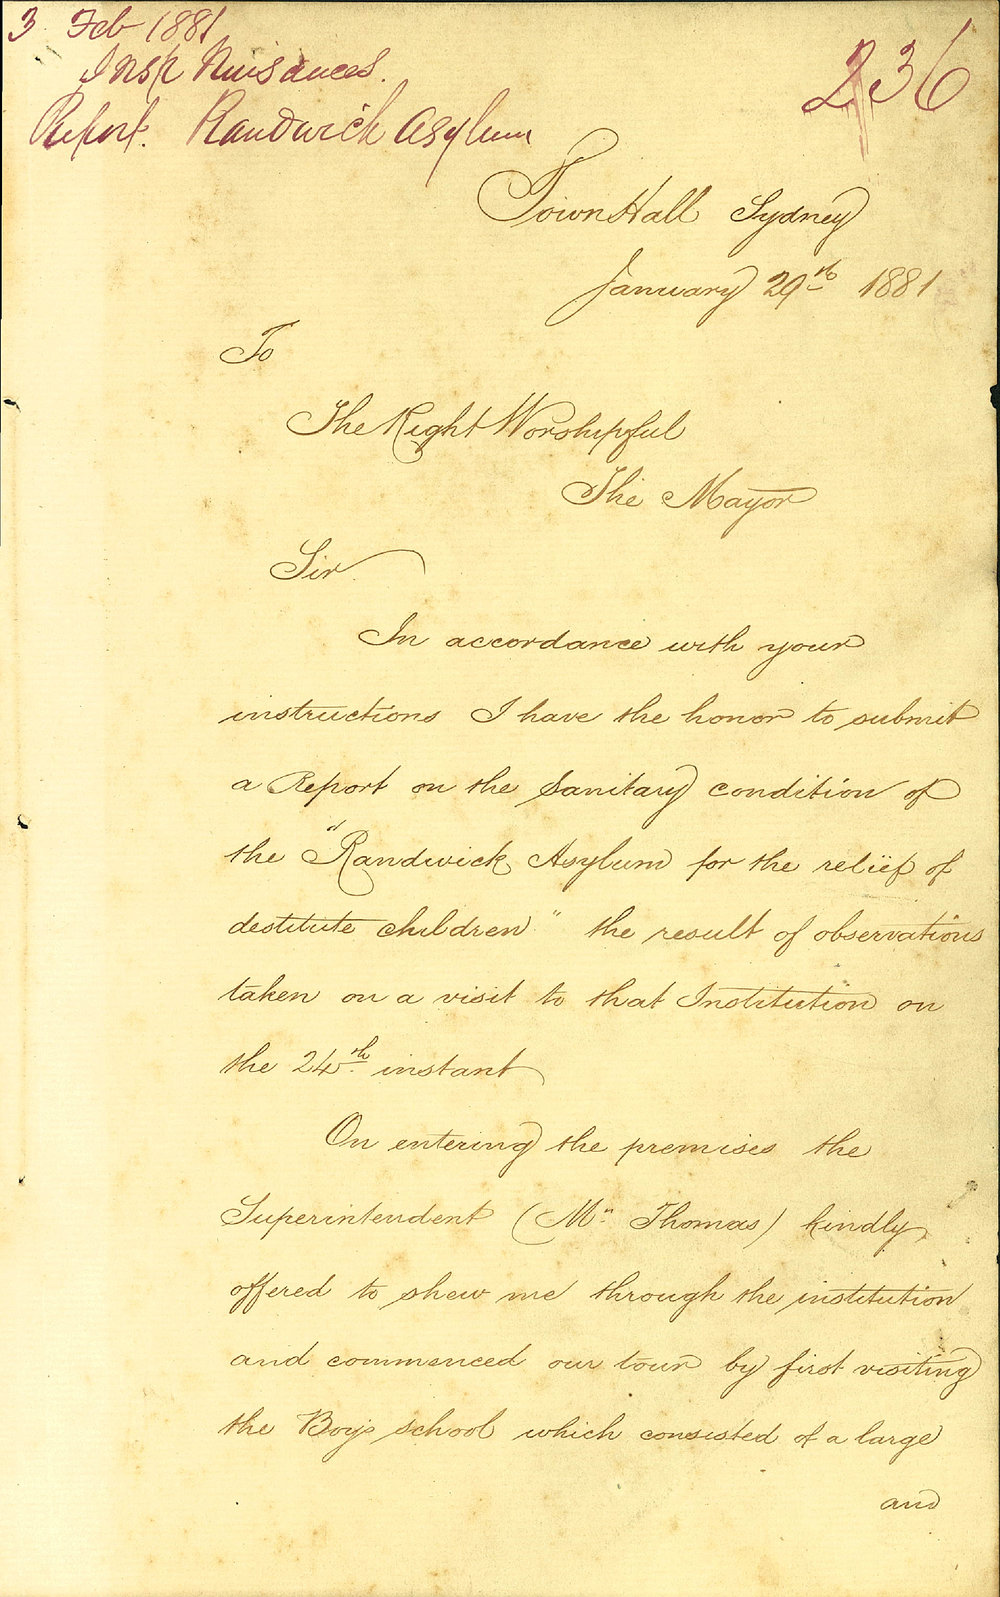 3 Feb 1881
Insp Nuisances.
Report. Randwick Asylum
236
Town Hall Sydney
January 29th 1881
To
The Right Worshipful
The Mayor
Sir
In accordance with your
instructions I have the honor to submit
a Report on the Sanitary condition of
the "Randwick Asylum for the relief of
destitute children" the result of observations
taken on a visit to that Institution on
the 24th instant
On entering the premises the
Superintendent (Mr Thomas) kindly
offered to shew me through the institution
and commenced our tour by first visiting
the Boys school which consisted of a large
and